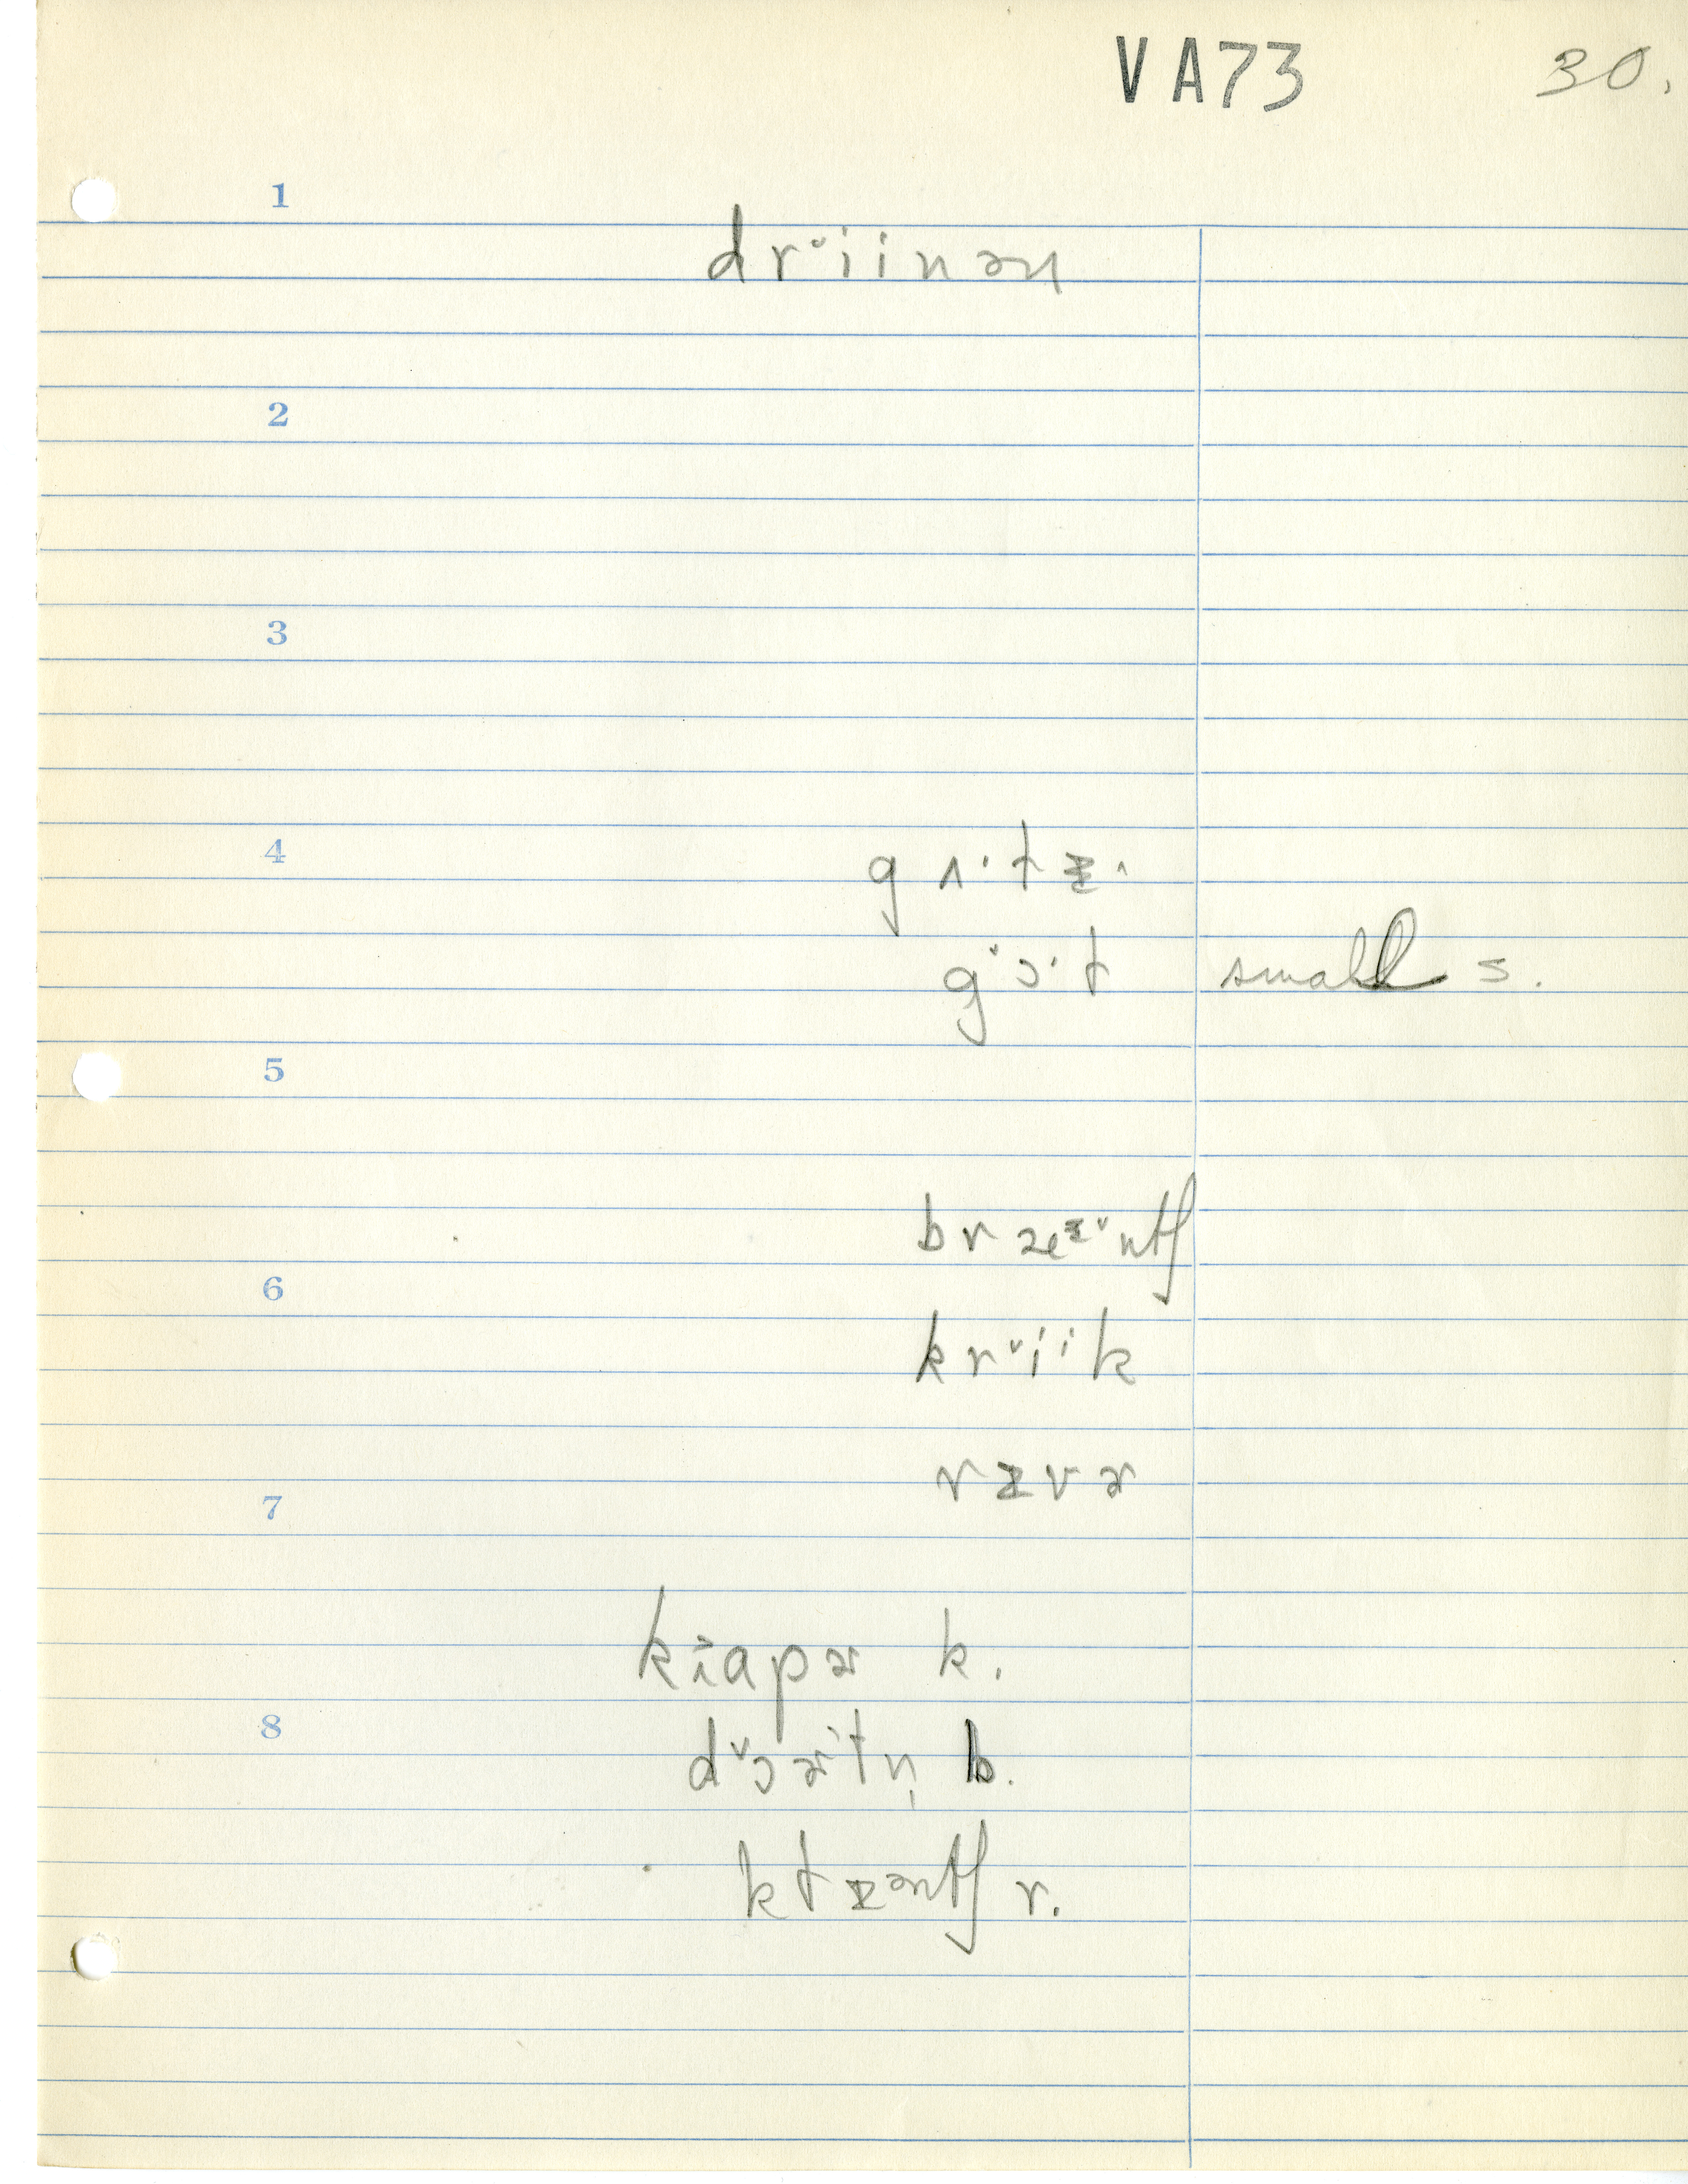 VA73 30.
1
drˇiinən
2
3
4
gʌ·tᵻ^
gˇɔ·t small s.
5
bræᵻˇntʃ
6
krˇiik
rᵻvɚ
7
kĭapɚ k.
8
dˇɔɚˈtn̩ b.
ktᵻəntʃ r.